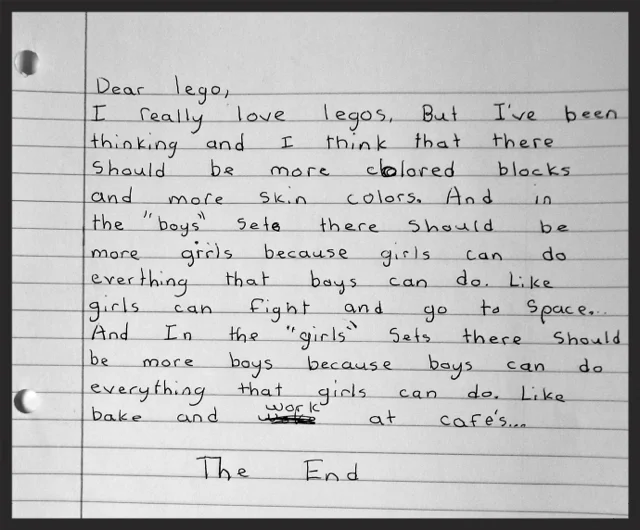 Dear lego,
I really love legos. But I've been
thinking and I think that there
should be more colored blocks
and more skin colors. And in
the "boys" sets there should be
more girls because girls can do
everthing that boys can do. Like
girls can fight and go to space...
And In the "girls" sets there should
be more boys because boys can do
everything that girls can do. Like
bake and work at cafe's...
The End